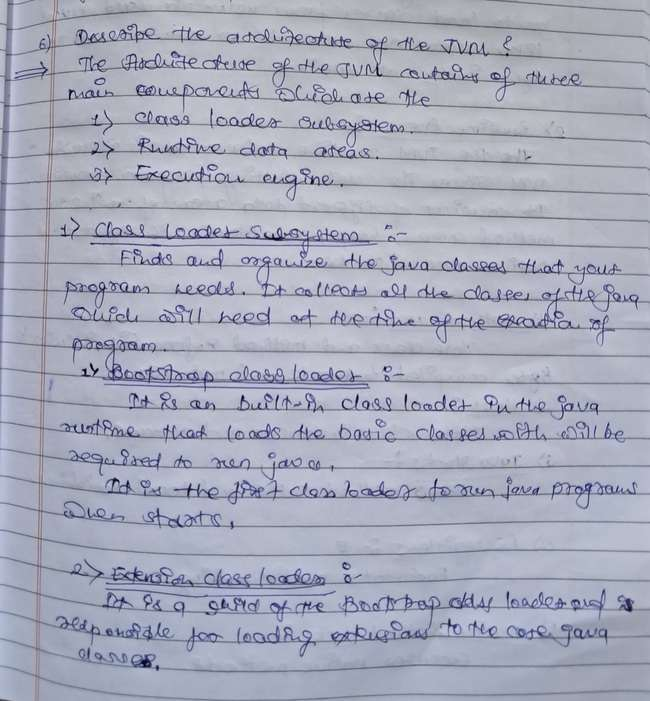 6) Describe the architecture of the JVM ?
⇒ The Architecture of the JVM contains of three
main components which are the
1) class loader subsystem.
2) Runtime data areas.
3) Execution engine.
1) Class Loader Subsystem :-
Finds and organize the java classes that your
program needs. It collects all the classes of the java
which will need at the time of the execution of
program.
1) Bootstrap class loader :-
It is an built-in class loader in the java
runtime that loads the basic classes with will be
required to run java,
It is the first class loader to run java programs
when starts,
2) Extension class loader :-
It is a child of the Bootstrap class loader and is
responsible for loading extensions to the core java
classes.